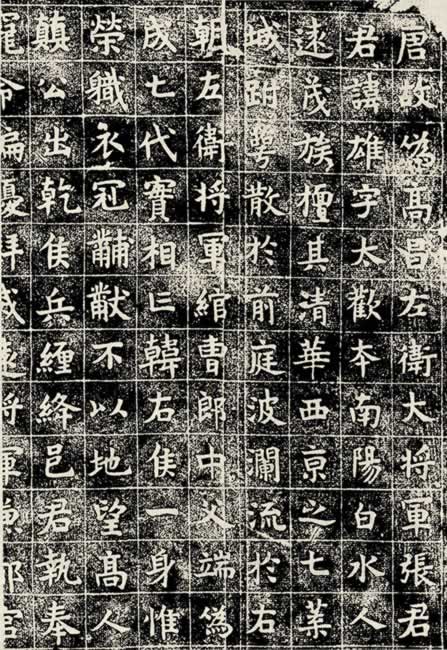 唐故偽高昌左衛大将軍張君
君諱雄字太歡本南陽白水人
遠茂族檀其清華西京之七葉
城跗萼散於前庭波瀾流於右
朝左衛将軍綰曹郎中父端偽
成七代賓相亡韓右侯一身惟
榮職衣冠黼黻不以地望高人
鎮公出乾侯兵纏絳邑君執奉
寵命偏優拜威遠将軍兼都官